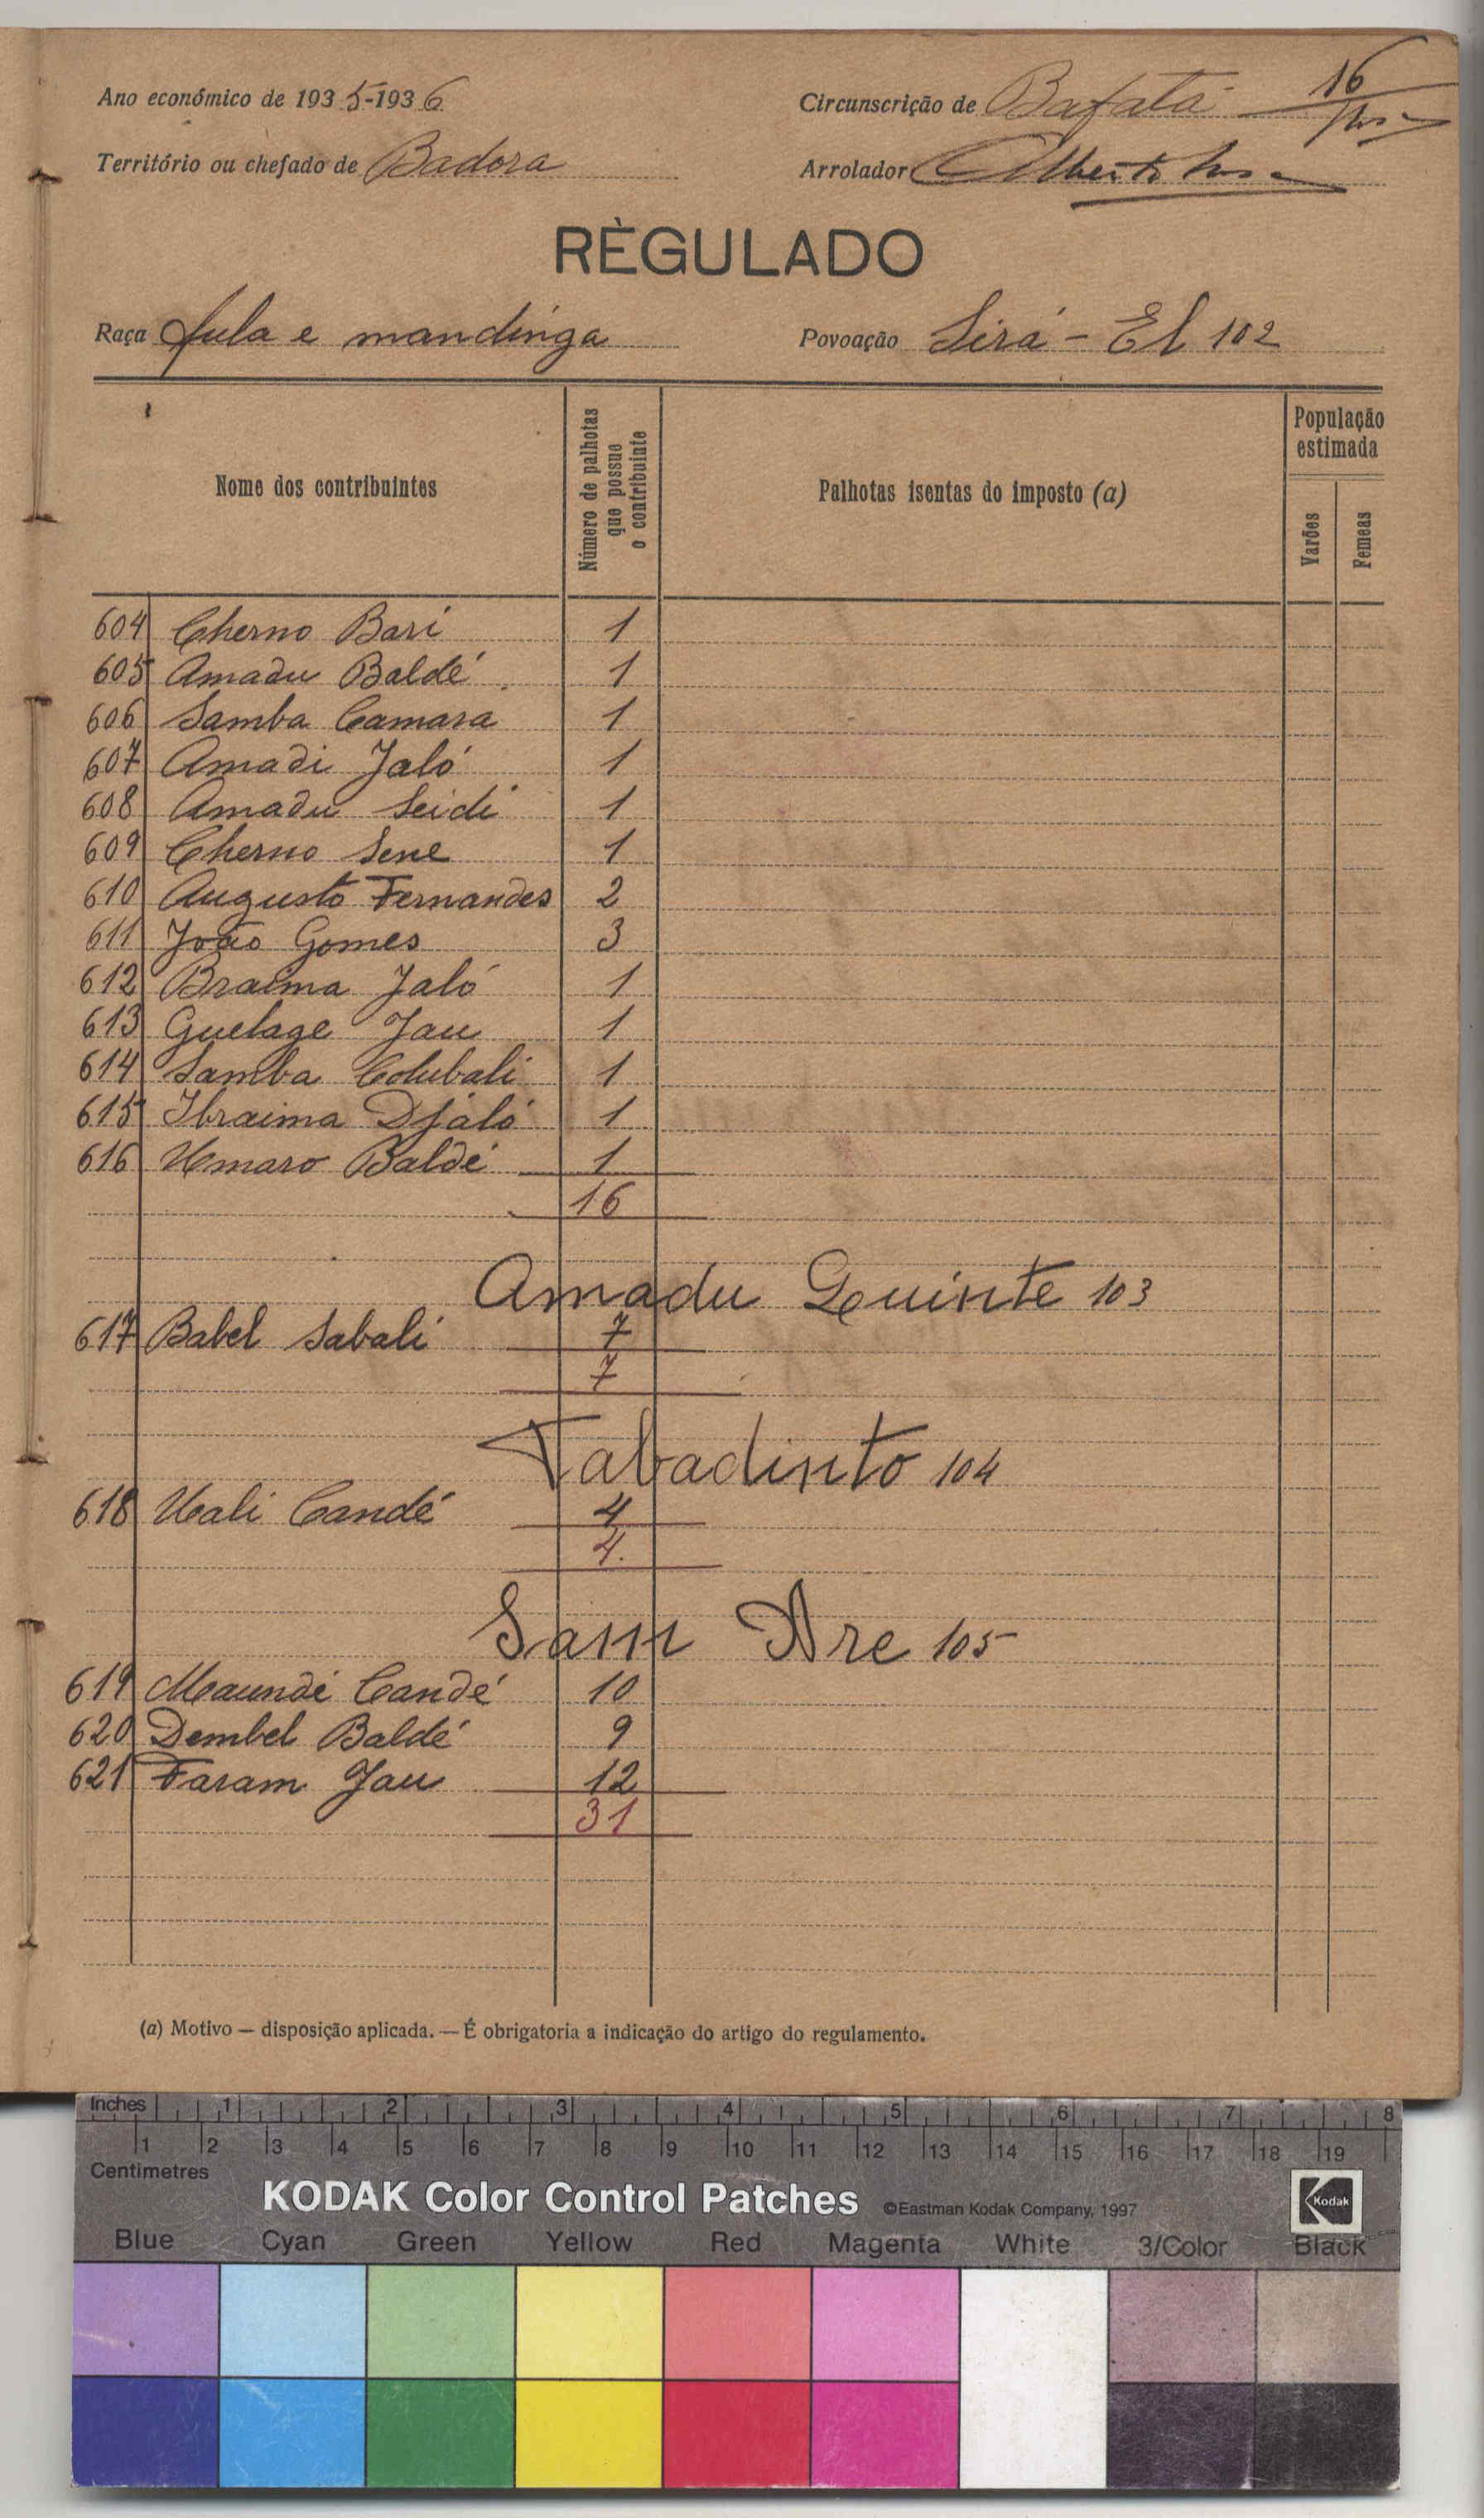 Ano económico de 1935-1936 Circunscrição de Bafatá 16
Território ou chefado de Badora Arrolador Alberto
RÈGULADO
Raça fula e mandinga Povoação Sirá-El 102
Nome dos contribuintes Número de palhotas que possue o contribuinte Palhotas isentas do imposto (a) População estimada Varões Femeas
604 Cherno Bari 1
605 Amadu Baldé 1
606 Samba Camara 1
607 Amadi Jaló 1
608 Amadu Seidi 1
609 Cherno Sene 1
610 Augusto Fernandes 2
611 João Gomes 3
612 Braima Jaló 1
613 Guelage Jau 1
614 Samba Colubali 1
615 Ibraima Djaló 1
616 Umaro Baldé 1
16
Amadu Quinte 103
617 Babel Sabali 7
7
Tabadinto 104
618 Uali Candé 4
4.
Sam Are 105
619 Maundé Candé 10
620 Dembel Baldé 9
621 Faram Jau 12
31
(a) Motivo — disposição aplicada. — É obrigatoria a indicação do artigo do regulamento.
Inches 1 2 3 4 5 6 7 8
1 2 3 4 5 6 7 8 9 10 11 12 13 14 15 16 17 18 19
Centimetres
KODAK Color Control Patches ©Eastman Kodak Company, 1997 Kodak
Blue Cyan Green Yellow Red Magenta White 3/Color Black